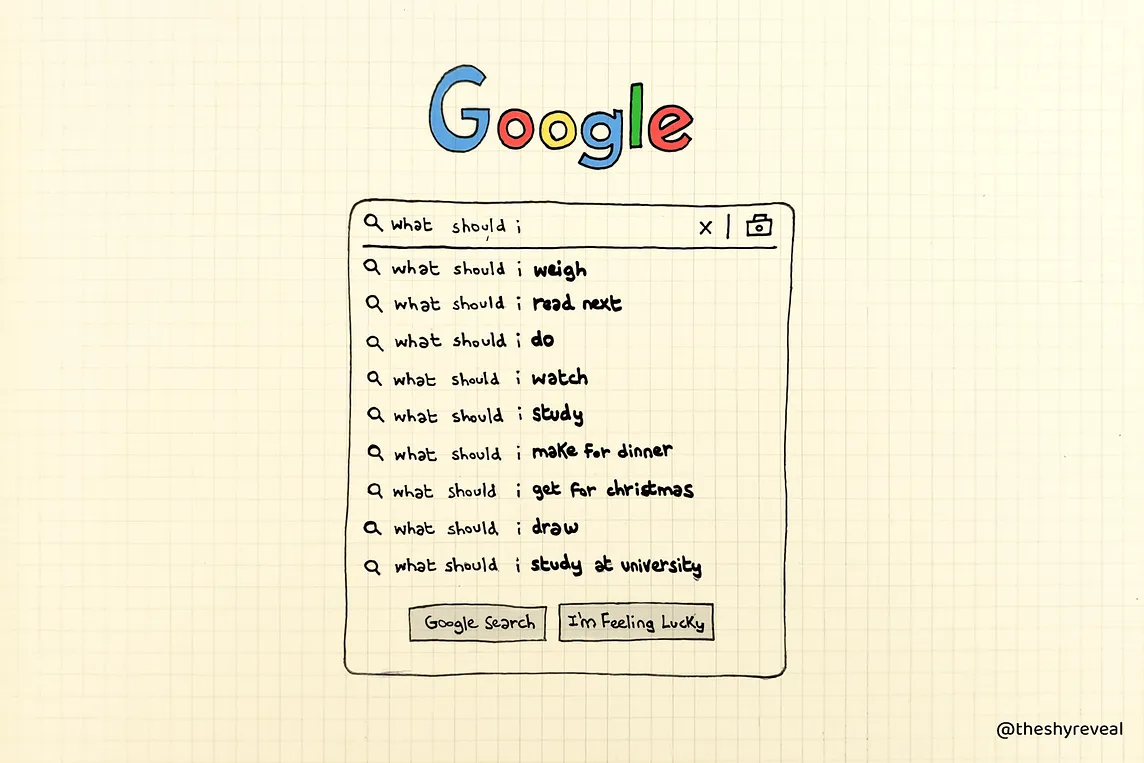 Google
what should i x
what should i weigh
what should i read next
what should i do
what should i watch
what should i study
what should i make for dinner
what should i get for christmas
what should i draw
what should i study at university
Google Search I'm Feeling Lucky
@theshyreveal